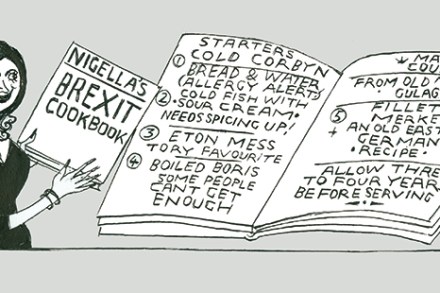 NIGELLA'S
BREXIT
COOKBOOK
STARTERS
COLD CORBYN
① BREAD & WATER
(ALLERGY ALERT)
② COLD FISH WITH
SOUR CREAM.
NEEDS SPICING UP!
③ ETON MESS
TORY FAVOURITE
④ BOILED BORIS
SOME PEOPLE
CAN'T GET
ENOUGH
FROM OLD
GULAG
⑤ FILLET
MERKE
AN OLD EAST
GERMAN
RECIPE.
ALLOW THRE
TO FOUR YEAR
BEFORE SERVING